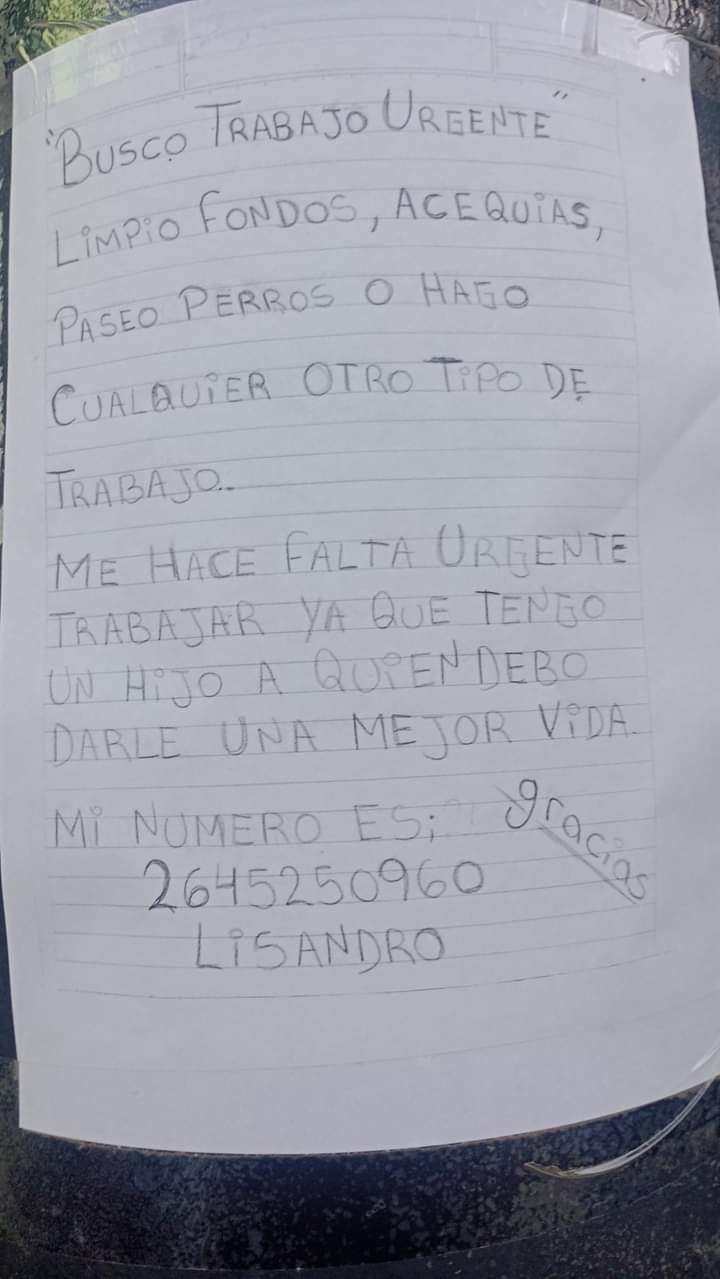 "BUSCO TRABAJO URGENTE"
LIMPIO FONDOS, ACEQUIAS,
PASEO PERROS O HAGO
CUALQUIER OTRO TIPO DE
TRABAJO..
ME HACE FALTA URGENTE
TRABAJAR YA QUE TENGO
UN HIJO A QUIEN DEBO
DARLE UNA MEJOR VIDA.
MI NUMERO ES;
2645250960
LISANDRO
gracias